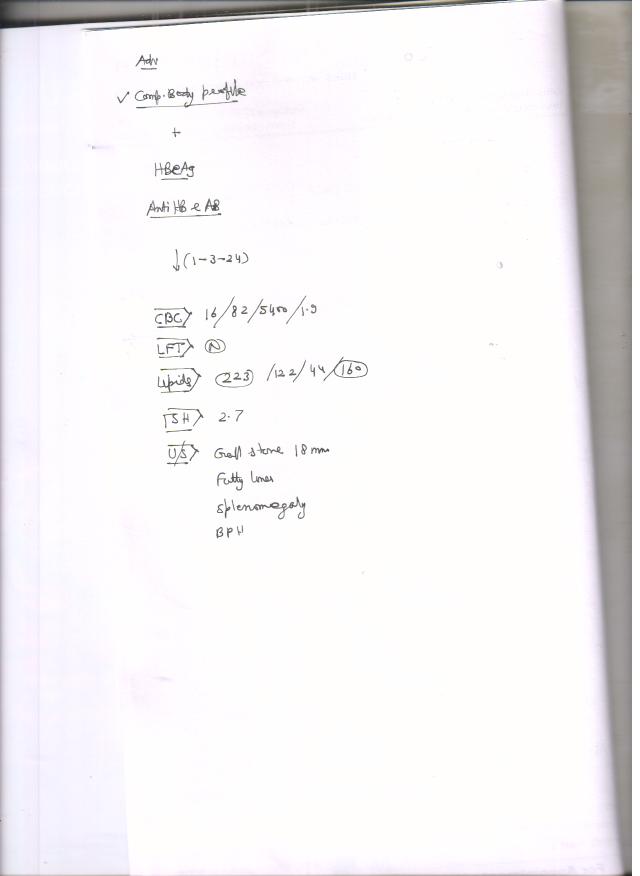 Adv
✓ Comp. Body profile
+
HBeAg
Anti HB e AB
↓ (1-3-24)
CBC 16/82/5400/1.9
LFT N
Lipids 223 /122/44/160
TSH 2.7
U/S Gall stone 18 mm
Fatty liver
Splenomegaly
BPH